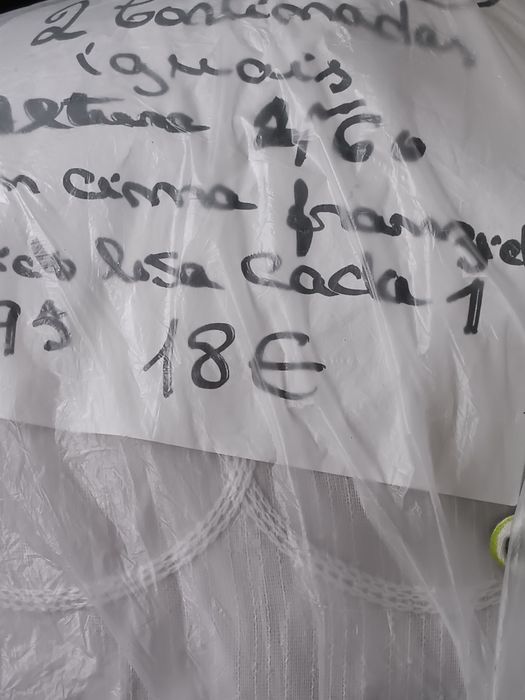 2 Cortinadas
iguais
altura 1,60
cima franzid
lisa cada 1
18€